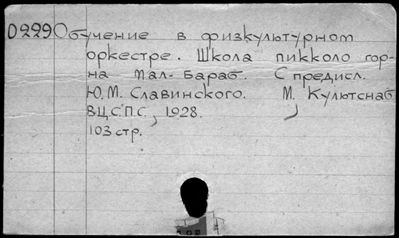 0229 Обучение в физкультурном
оркестре. Школа пикколо гор-
на и мал-бараб. С предисл.
Ю.М. Славинского. М. Культснаб
ВЦСПС, 1928.
103 стр.